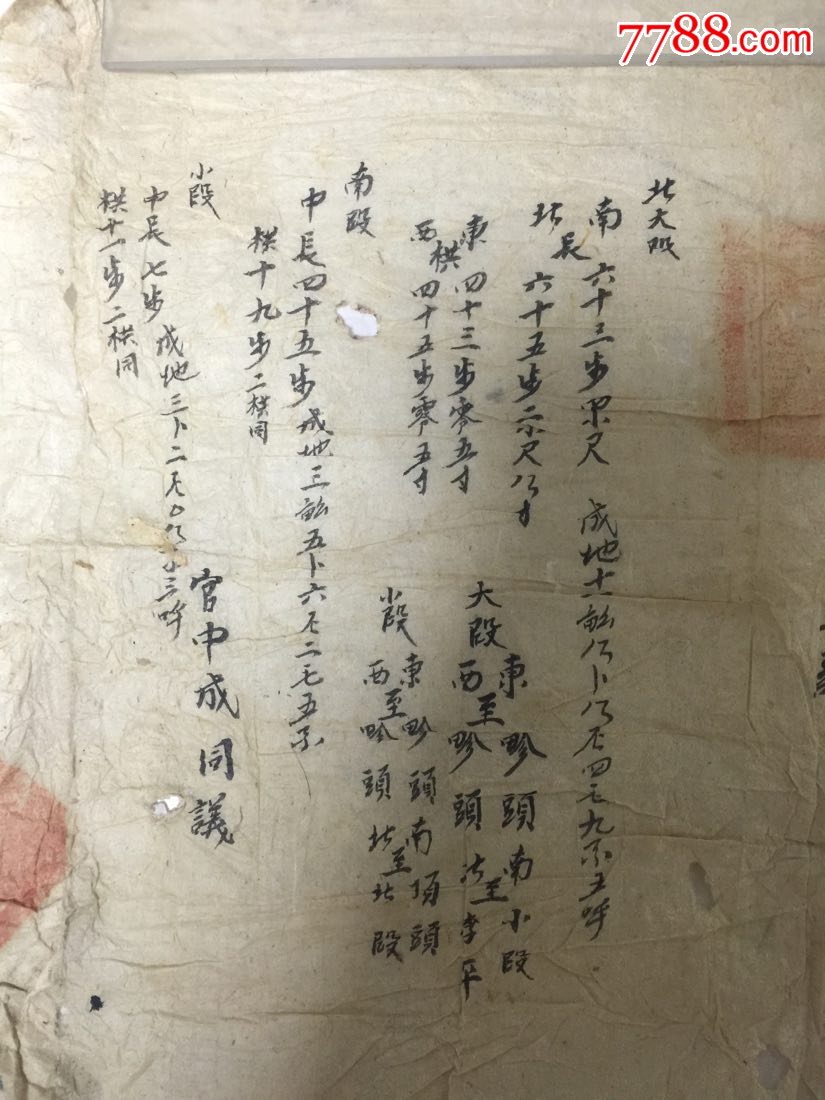 7788.com
北大段
南 六十三步 尺
長
北 六十五步 尺 寸
成地十一畝 卜 四 九 五
東 四十三步零五寸
栱
西 四十五步零五寸
大段 東至畛頭 南小段
西至畛頭 北至李平
南段
中長四十五步 成地三畝五卜六 二 五
栱十九步二栱同
小段 東至畛頭 南頂頭
西至畛頭 北至北段
小段
中長七步 成地三卜二 三
栱十一步二栱同
官中成 同議